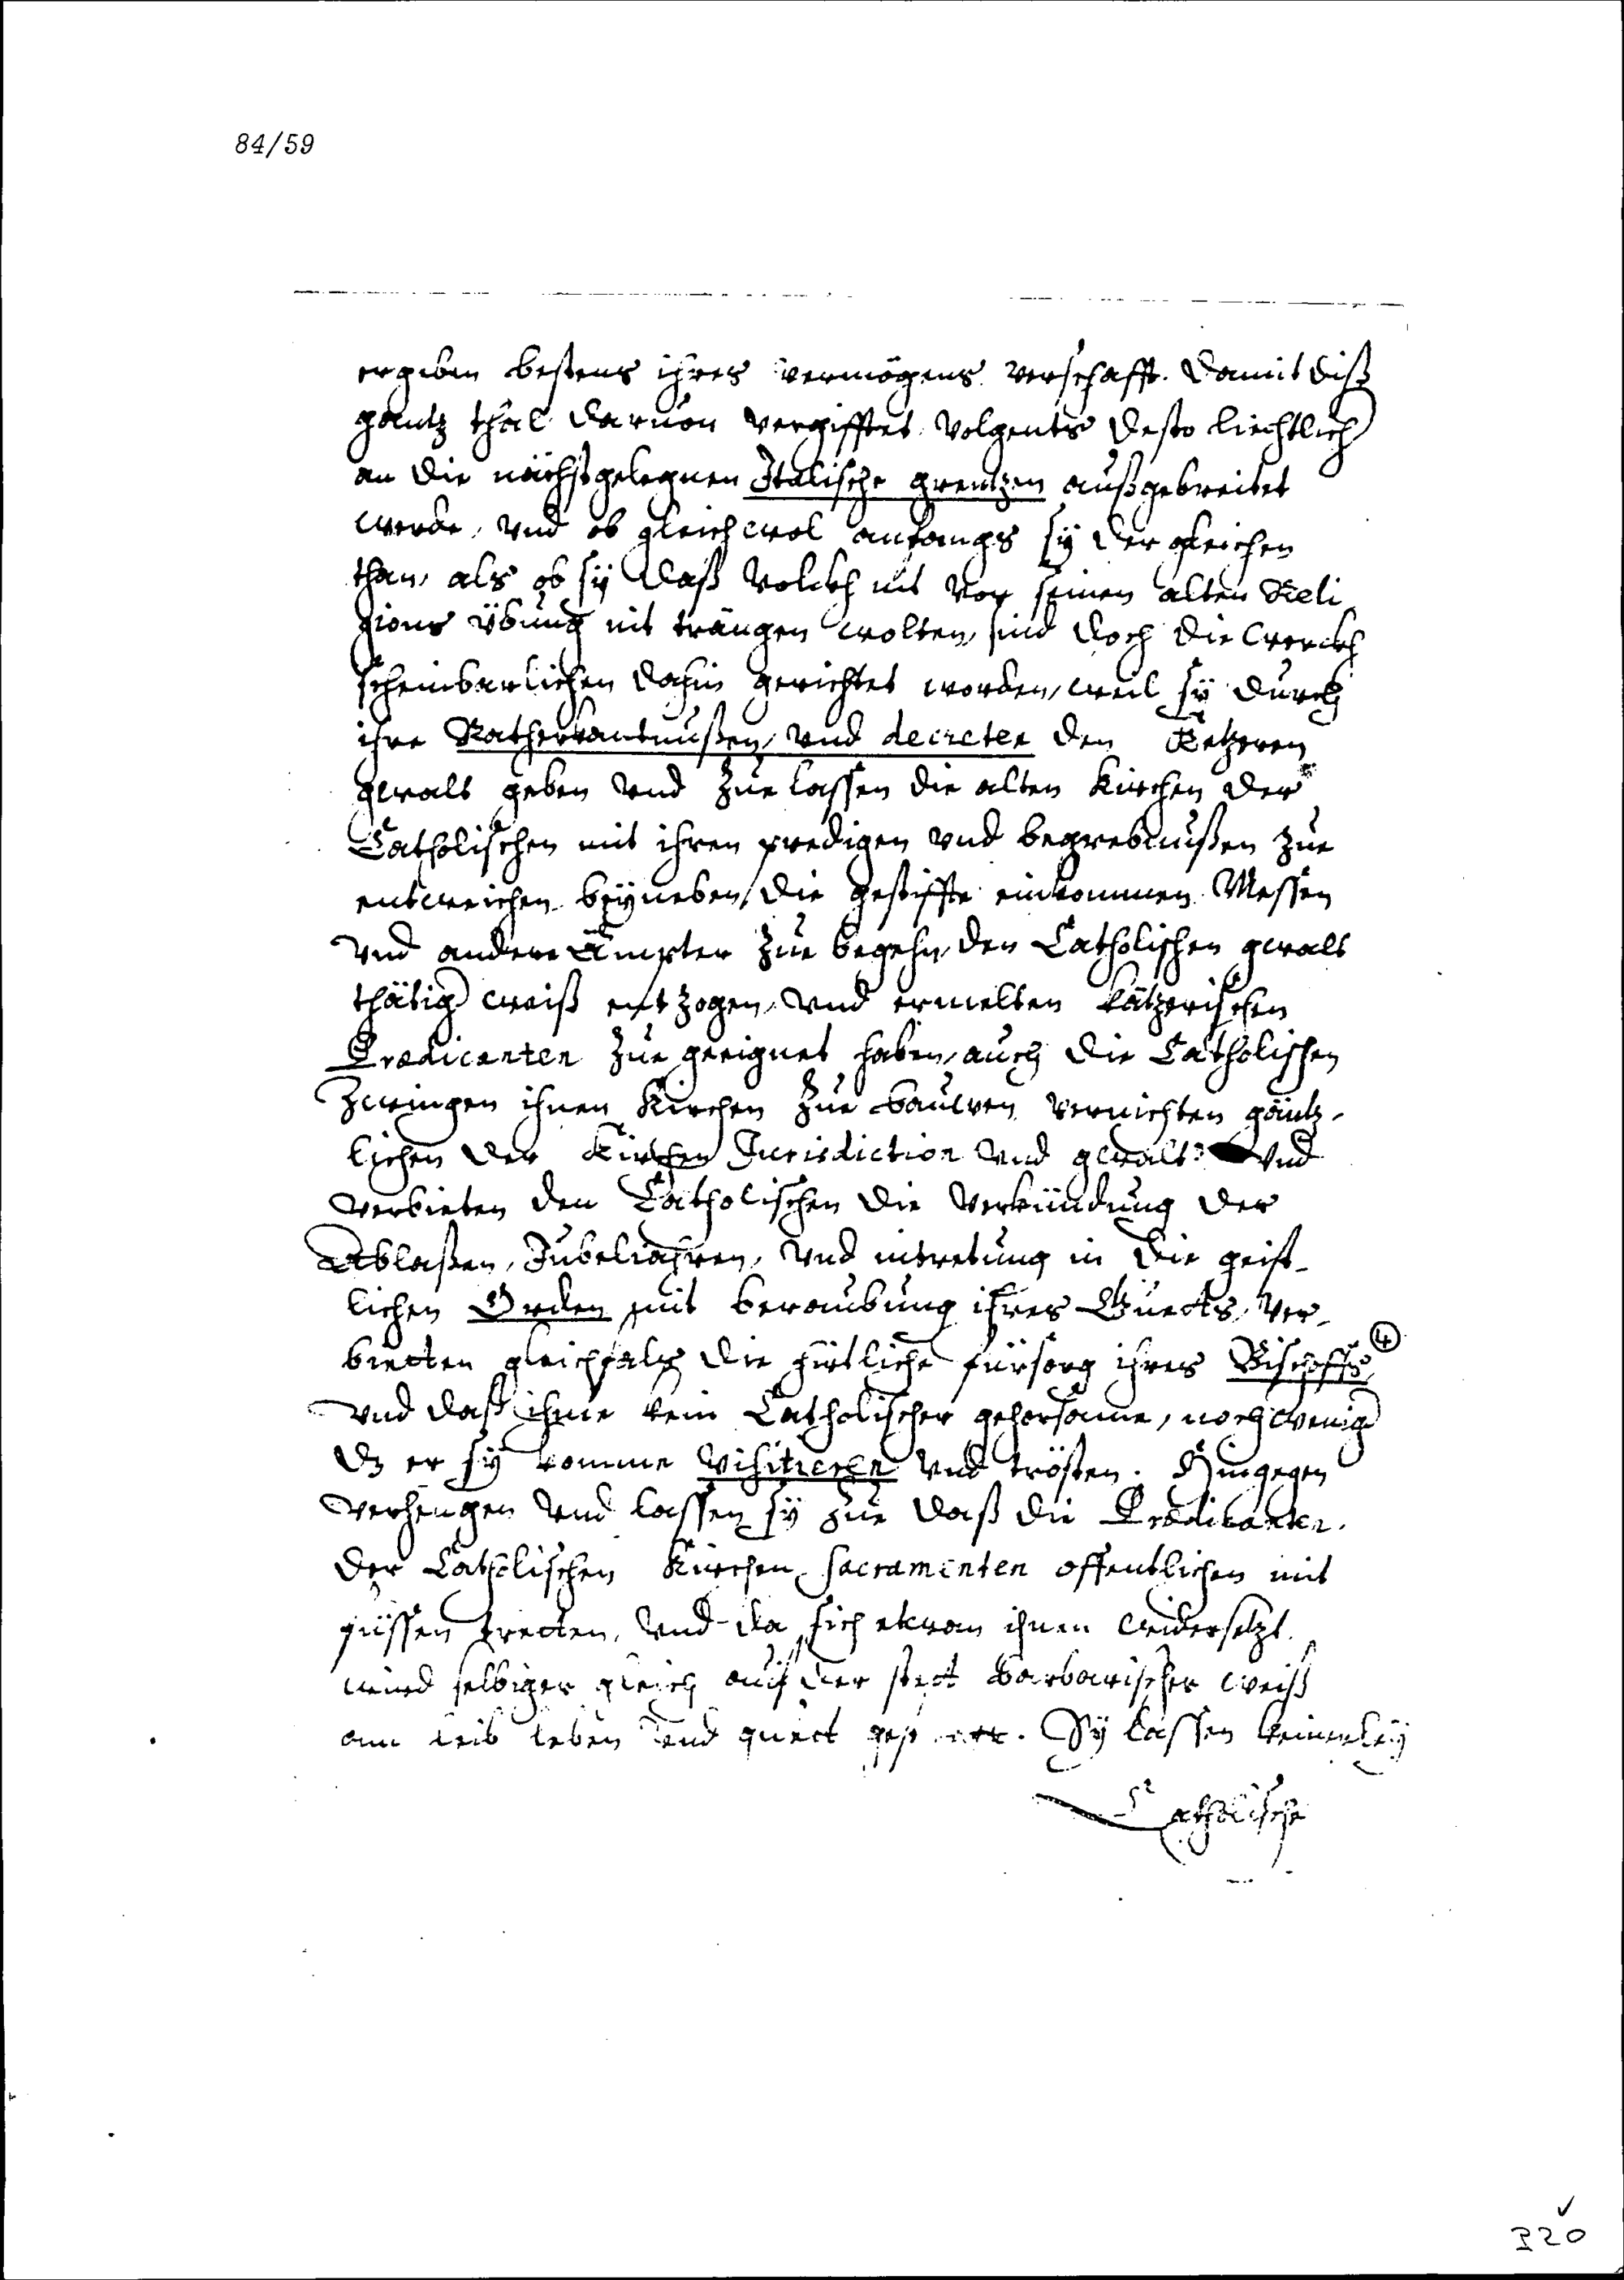 84/59
ergeben bestens ihres vermögens verschafft. Damit diß
gantz thal daruon vergifftet volgents desto liechtlich
an die nächstgelegnen Italische grentzen außgebreitet
werde, vnd ob gleichwol anfangs sy der gleichen
than, als ob sy daß Volckh nit von seinen alten Reli
gions übung nit trängen wolten, sind doch die werckh
scheinbarlichen dahin gerichtet worden, weil sy durch
ihre Rathserkantnußen, vnd decreten den Ketzeren
gwalt geben vnd Zue lassen die alten Kirchen der
Catholischen mit ihren predigen vnd begrebnußen zue
entweichen beyneben, die gestiffte einkommen Messen
vnd andere Ämpter zue begehn, den Catholischen gwalt
thätig weiß entzogen, vnd ermelten kätzerischen
Prædicanten zue geeignet haben, auch die Catholischen
Zwingen ihnen Kirchen zue bauwen vernichten gäntz-
lichen der Kirchen Jurisdiction vnd gwalt: vnd
verbieten den Catholischen die verkündung der
Ablaßen, Jubeljahren, vnd intretung in die geist-
lichen Orden mit beraubung ihres Guetts, ver-
bietten gleichfals die hirtliche fürsorg ihres Bischoffs, 4
vnd daß ihme kein Catholischer gehorsamme, noch wenig
dz er sy komme visitieren vnd trösten. Hingegen
verhengen vnd lassen sy zue daß die Prædikanten
der Catholischen Kirchen sacramenten offentlichen mit
füssen tretten, vnd da sich etwan ihnen widersetzt
wird selbiger gleich auf der stett barbarischer weiß
am leib leben vnd guett. Sy lassen keinerley
Catholische
320